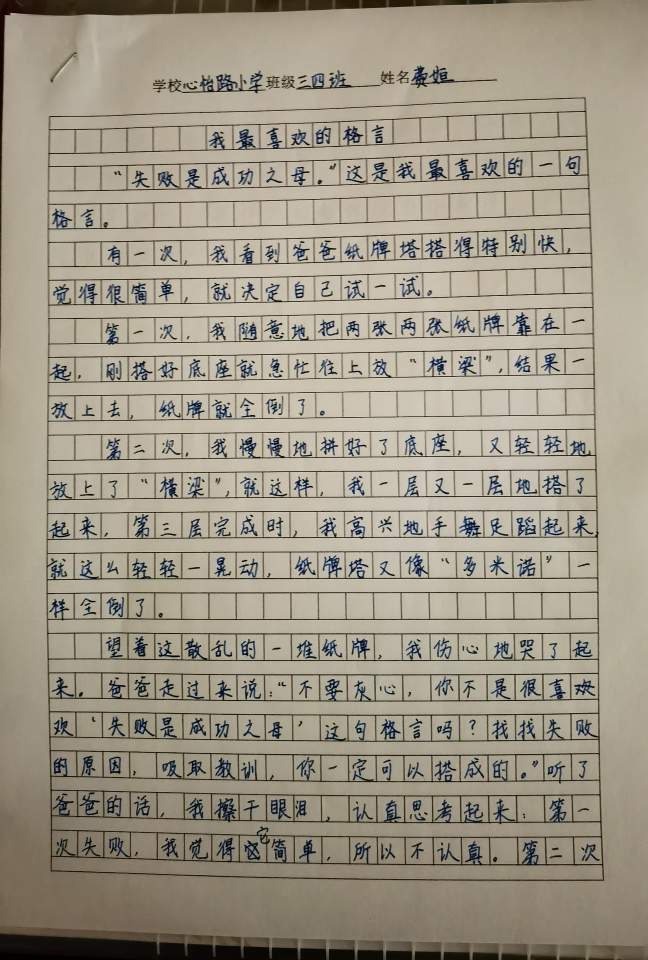 学校心怡路小学班级三四班 姓名费姮
我最喜欢的格言
“失败是成功之母。”这是我最喜欢的一句
格言。
有一次，我看到爸爸纸牌塔搭得特别快，
觉得很简单，就决定自己试一试。
第一次，我随意地把两张两张纸牌靠在一
起，刚搭好底座就急忙往上放“横梁”，结果一
放上去，纸牌就全倒了。
第二次，我慢慢地拼好了底座，又轻轻地
放上了“横梁”，就这样，我一层又一层地搭了
起来，第三层完成时，我高兴地手舞足蹈起来，
就这么轻轻一晃动，纸牌塔又像“多米诺”一
样全倒了。
望着这散乱的一堆纸牌，我伤心地哭了起
来。爸爸走过来说：“不要灰心，你不是很喜欢
欢‘失败是成功之母’这句格言吗？找找失败
的原因，吸取教训，你一定可以搭成的。”听了
爸爸的话，我擦干眼泪，认真思考起来：第一
次失败，我觉得它简单，所以不认真。第二次